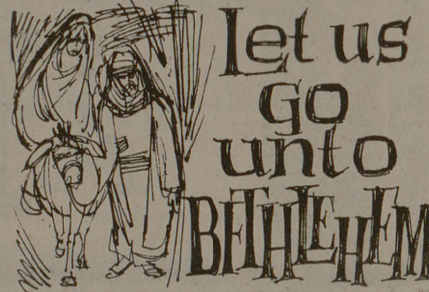 Let us
go
unto
BETHLEHEM